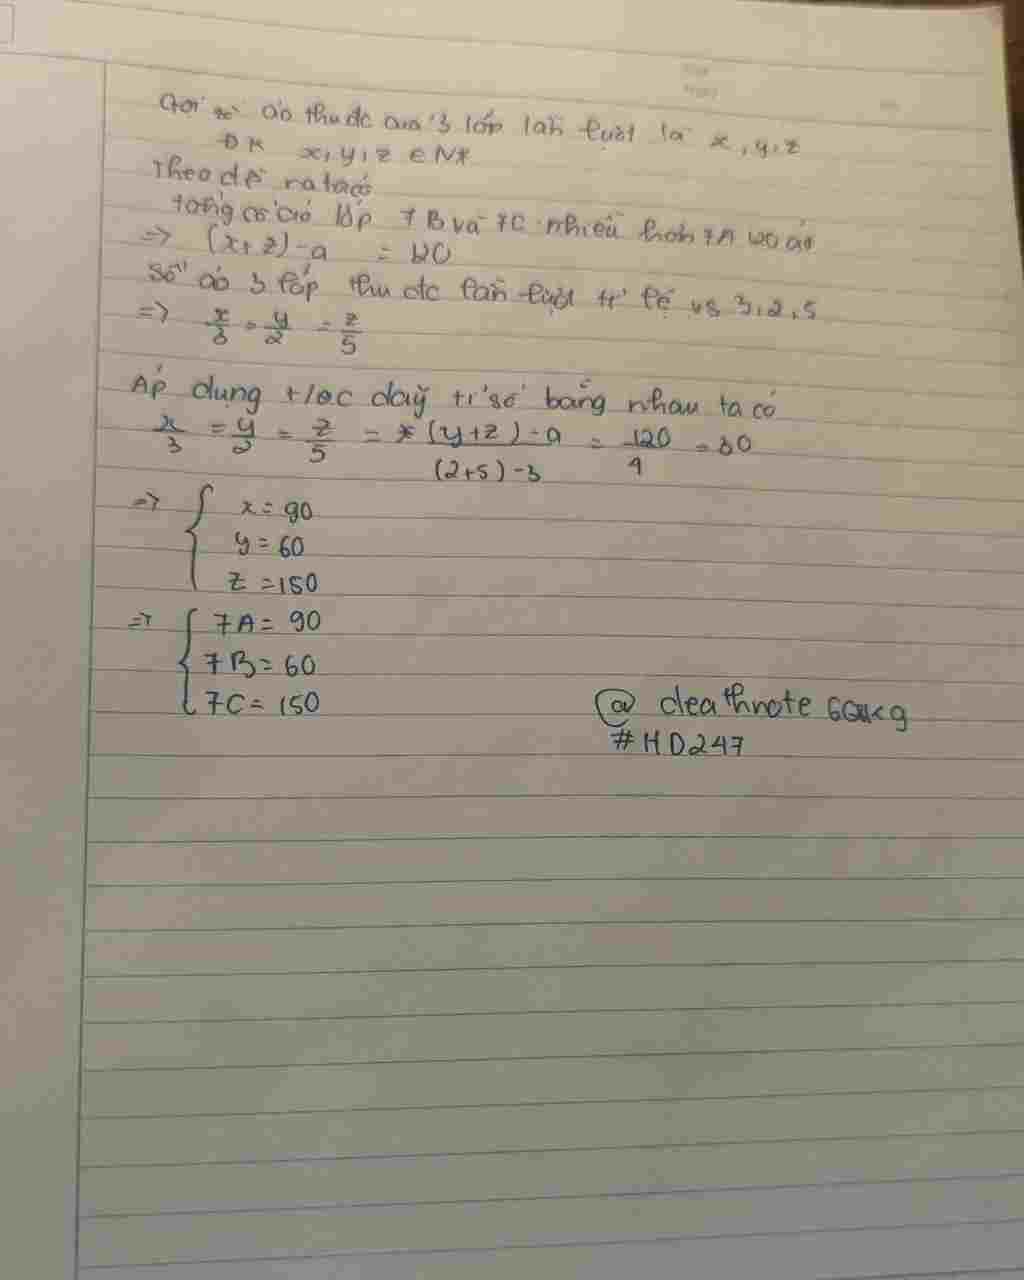 Gọi số áo thu đc của 3 lớp lần lượt là x, y, z
ĐK x, y, z ∈ N*
Theo đề ra ta có
tổng số áo lớp 7B và 7C nhiều hơn 7A 120 áo
=> (x+z)-a = 120
Số áo 3 lớp thu đc lần lượt tỉ lệ vs 3, 2, 5
=> x/3 = y/2 = z/5
Áp dụng t/c dãy tỉ số bằng nhau ta có
x/3 = y/2 = z/5 = (y+z)-a / (2+5)-3 = 120/4 = 30
=> { x = 90
y = 60
z = 150
=> { 7A = 90
7B = 60
7C = 150
@ deathnote
#HD247